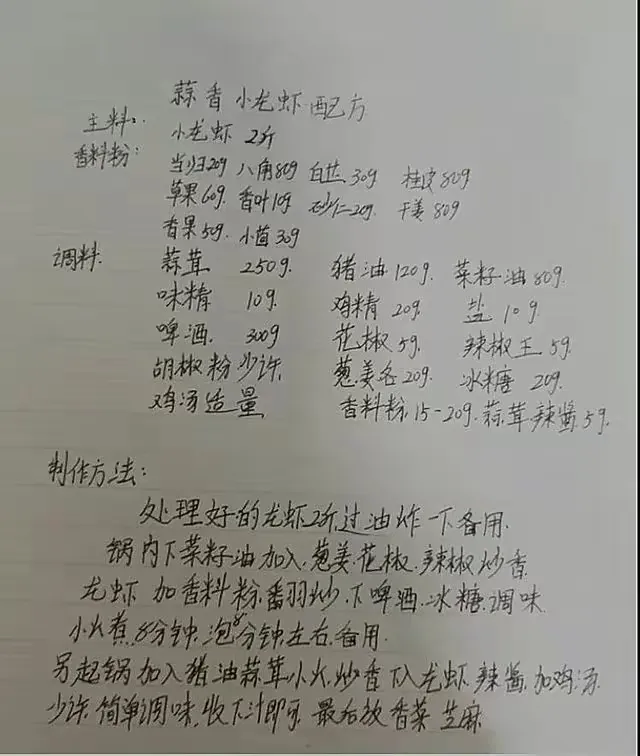 蒜香小龙虾配方
主料: 小龙虾 2斤
香料粉: 当归20g 八角80g 白芷30g 桂皮80g
草果60g 香叶10g 砂仁20g 干姜80g
香果50g 小茴30g
调料: 蒜茸 250g 猪油120g 菜籽油80g
味精 10g 鸡精 20g 盐 10g
啤酒 300g 花椒5g 辣椒王 5g
胡椒粉少许 葱姜各20g 冰糖 20g
鸡汤适量 香料粉15-20g 蒜茸辣酱5g
制作方法:
处理好的龙虾2斤过油炸一下备用
锅内下菜籽油加入葱姜.花椒.辣椒炒香
龙虾加香料粉翻炒.下啤酒.冰糖.调味
小火煮8分钟,泡8分钟左右.备用
另起锅加入猪油蒜茸小火炒香下入龙虾.辣酱.加鸡汤
少许.简单调味,收下汁即可.最后放香菜芝麻